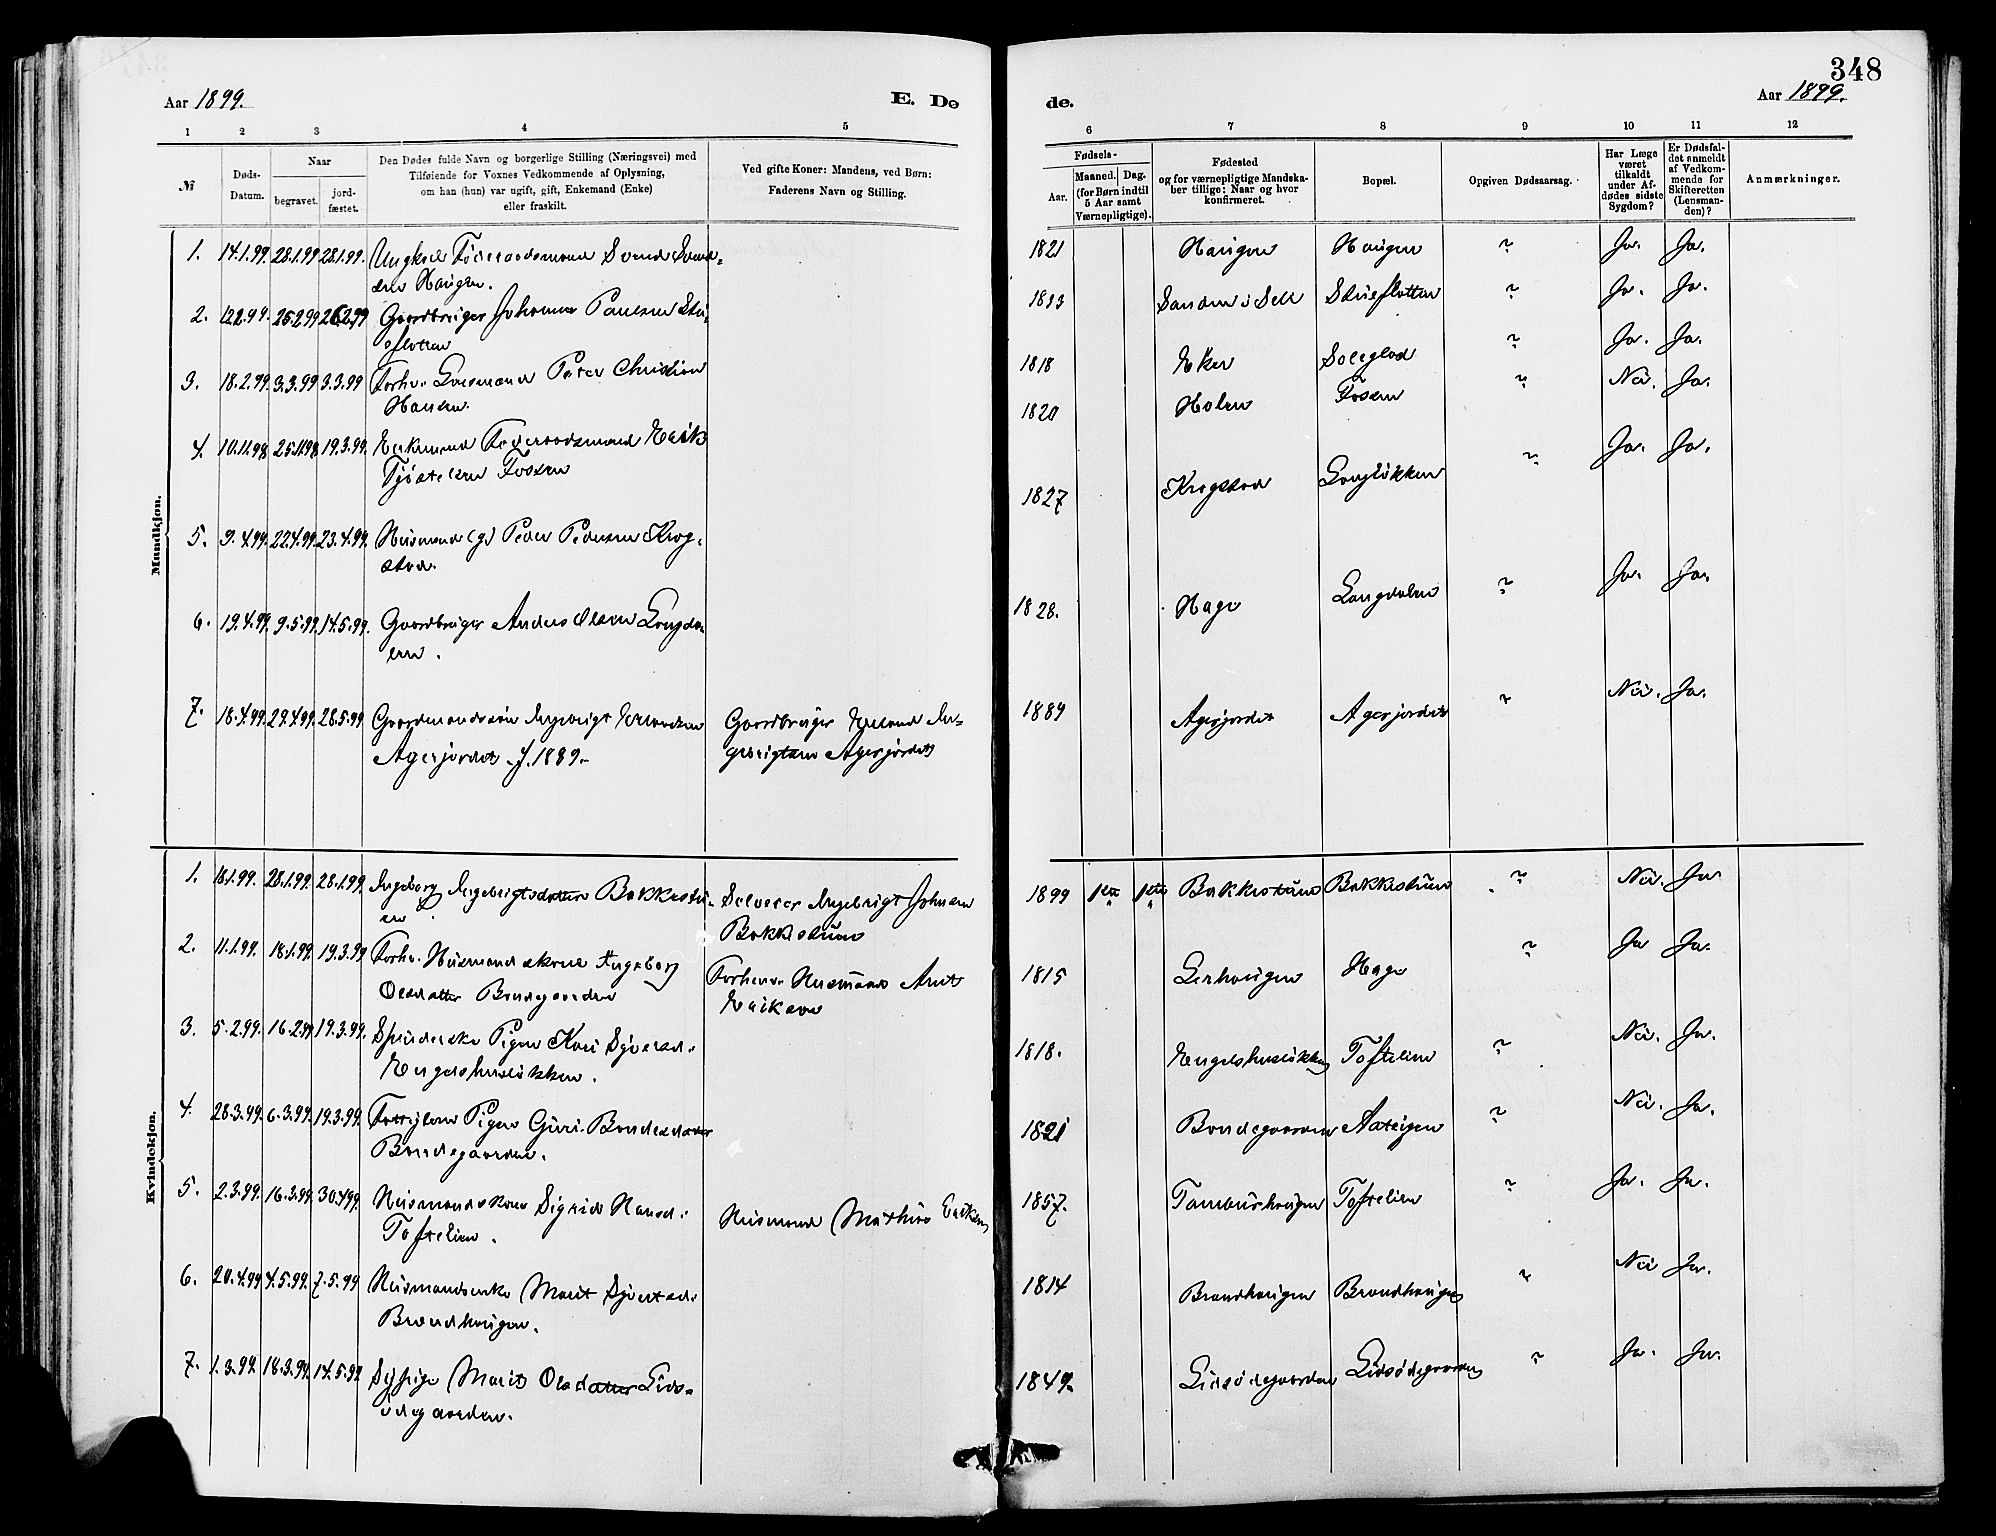 348
Aar 1899.
E. Dø
de.
Aar 1899.
1 2 3 4 5
6 7 8 9 10 11 12
№
Døds-
Datum.
Naar
begravet.
jord-
fæstet.
Den Dødes fulde Navn og borgerlige Stilling (Næringsvei) med
Tilføiende for Voxnes Vedkommende af Oplysning,
om han (hun) var ugift, gift, Enkemand (Enke)
eller fraskilt.
Ved gifte Koner: Mandens, ved Børn:
Faderens Navn og Stilling.
Fødsels-
Aar.
Maaned. Dag.
(for Børn indtil
5 Aar samt
Værnepligtige).
Fødested
og for værnepligtige Mandska-
ber tillige: Naar og hvor
konfirmeret.
Bopæl.
Opgiven Dødsaarsag.
Har Læge
været
tilkaldt
under Af-
dødes sidste
Sygdom?
Er Dødsfal-
det anmeldt
af Vedkom-
mende for
Skifteretten
(Lensman-
den)?
Anmærkninger.
Mandkjøn.
1. 14.1.99. 28.1.99 28.1.99. Ungkarl Föderaadsmand Svend Svend- 1821 Haugen Haugen ? Ja. Ja.
sen Haugen.
2. 12.2.99. 26.2.99 26.2.99 Gaardbruger Johannes Paulsen Stu- 1813 Sanden i Sell Stueflotten ? Ja. Ja.
eflotten
3. 18.2.99. 3.3.99 3.3.99 Forhv. Peter Christian 1818 Eker Soleglad ? Ja. Ja.
Hansen.
4. 10.11.98 25.11.98 19.3.99. Enkemand Föderaadsmand Erik 1820 Holen Fossen ? Nei. Ja.
Fossen
5. 9.4.99. 22.4.99. 23.4.99. Husmand (g) Peder Pedersen Krog- 1827 Krogstad Langløkken ? Ja. Ja.
stad.
6. 19.4.99. 9.5.99. 14.5.99. Gaardbruger Anders Olsen Langda- 1828. Hage Langdalen ? Ja. Ja.
len.
7. 18.4.99. 27.4.99. 28.5.99. Gaardmandssön Ingebrigt Erlandsen Gaardbruger Erland In- 1889 Agerjordet Agerjordet ? Nei. Ja.
Agerjordet f. 1889.- gebrigtsen Agerjordet
Kvindekjøn.
1. 18.1.99. 28.1.99. 28.1.99. Ingeborg Ingebrigtsdatter Bakkestu- Selveier Ingebrigt Johnsen 1899 1ste 1ste Bakkestuen Bakkestuen ? Nei. Ja
en Bakkestuen
2. 11.1.99. 18.1.99. 19.3.99 Forhv. Husmandskone Ingeborg Forhenv. Husmand Arnt 1815 Lerhougen Hage ? Ja Ja.
Olsdatter Bondegaarden Eriksen
3. 5.2.99. 16.2.99. 19.3.99. Spinderske Pigen Kari Syversd. 1818. Engelshusløkken Toftelien ? Nei. Ja.
Engelshusløkken.
4. 28.3.99. 6.3.99. 19.3.99. Pigen Guri Bondegaarden 1821 ? Nei. Ja.
Bondegaarden.
5. 2.3.99. 16.3.99. 30.4.99. Husmandskone Sigrid Hansd. Husmand Mathias Eriksen 1857. Tamburhougen Toftelien ? Ja. Ja.
Toftelien.
6. 20.4.99 4.5.99. 7.5.99 Husmandsenke Marit Syvertsd. 1814 Brandhougen Brandhougen ? Nei Ja.
Brandhougen.
7. 1.3.99. 18.3.99. 14.5.99 Marit Olsdatter Lids- 1849. Lidsödegaarden Lidsödegaarden ? Ja. Ja.
ödegaarden.